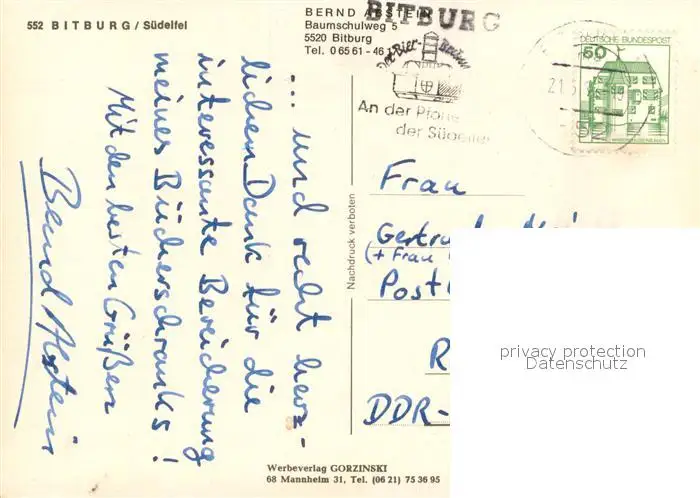 552 BITBURG / Südeifel
BERND ALSTEIN
Baumschulweg 5
5520 Bitburg
Tel. 0 65 61 - 46
BITBURG
An der Pforte
der Südeifel
DEUTSCHE BUNDESPOST
50
21.5
... und recht herz-
lichen Dank für die
interessante Bereicherung
meines Bücherschranks!
Mit den besten Grüßen
Bernd Alstein
Nachdruck verboten
Frau
(+ Frau
DDR-
privacy protection
Datenschutz
Werbeverlag GORZINSKI
68 Mannheim 31, Tel. (06 21) 75 36 95